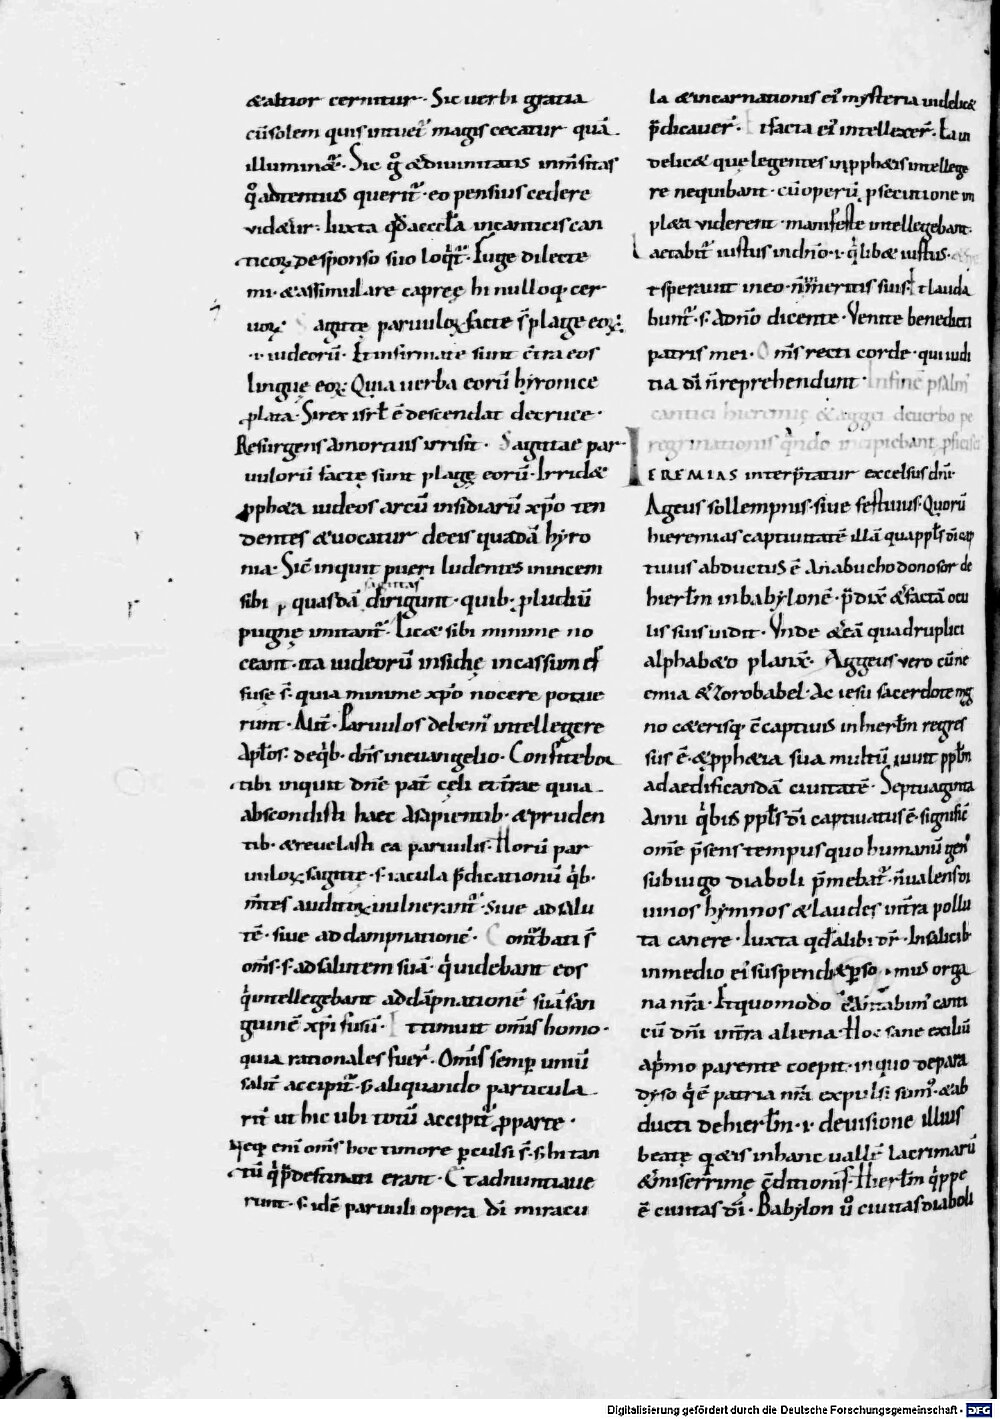 &altior cernitur. Sic uerbi gratia
cū solem quis intuet᷑ magis cecatur quā
illuminet᷑. Sic ḡ & diuinitatis inm̄sitas
q̊ adtentius querit᷑ eo pensius cedere
uidetur. Iuxta qđ aeccła in canticis can
ticoꝝ de sponso suo loq̄t᷑. Fuge dilecte
mi. & assimulare capreę hinnulo q; cer
uoꝝ. Sagitte paruuloꝝ facte s̄ plage eoꝝ.
.i. iudeorū. Et infirmate sunt c̄tra eos
linguę eoꝝ. Quia uerba eorū hyronice
plata. Si rex isrł ē descendat de cruce.
Resurgens a mortuis irrisit. Sagittae par
uulorū factę sunt plagę eorū. Irridet
ppheta iudeos arcū insidiarū xp̄o ten
dentes & uocatur decis quadā hyro
nia. Sic̄ inquit pueri ludentes inuicem
sibi quasdā sagittas dirigunt. quib; p ludū
pugnę imitant᷑. Licet sibi minime no
ceant. ita iudeorū insidię in cassum ef
fusę s̄. quia minime xp̄o nocere potue
runt. Alit̄. Paruulos debem᷒ intellegere
Apłos. de q̄b; dn̄s in euangelio. Confitebor
tibi inquit dn̄e pat̄ cęli et t̄rae quia
abscondisti haec a sapientib; & pruden
tib; & reuelasti ea paruulis. Horū par
uuloꝝ sagittę .s. iacula p̄dicationū q̄b;
m̄tes auditoꝝ uulnerant᷑. siue ad salu
tē. siue ad dampnationē. Conturbati s̄
om̄s .s. ad salutem suā. q̄ uidebant eos
q̄ intellegebant ad dāpnationē suā san
guinē xp̄i fusū. Et timuit om̄is homo.
quia rationales fuer̄. Om̄is semp uniū
salit̄ accipit᷑. s; aliquando particula
rit̄ ut hic ubi totū accipit᷑ p parte.
Neq; enī om̄s hoc timore p̄culsi s̄. s; hi tan
tū q̄ p̄destinati erant. Et adnuntiaue
runt .s. idē paruuli opera dī miracu
la & incarnationis ei᷒ mysteria uidelicet
p̄dicauer̄. Et facta ei᷒ intellexer̄. Ea ui
delicet que legentes in pphetis intellege
re nequibant. cū operū psecutione in
pleta uiderent. manifeste intellegebant.
Laetabit᷑ iustus in dn̄o .i. q̄libet iustus.
et sperauit in eo. n̄ in meritis suis. Et lauda
bunt᷑ .s. a dn̄o dicente. Venite benedicti
patris mei. Om̄s recti corde. qui iudi
tia dī n̄ reprehendunt. In finē psalm᷒
cantici hieremię & aggei de uerbo pe
regrinationis q̄ndo incipiebant pficisci
IEREMIAS interp̄tatur excelsus dn̄i.
Ageus sollempnis. siue festiuus. Quorū
hieremias captiuitatē illā qua ppłs dī cap
tiuus abductus ē a nabuchodonosor de
hierłm in babylonē. p̄dix̄ & factā ocu
lis suis uidit. Vnde & eā quadruplici
alphabeto planx̄. Aggeus uero cū ne
emia & zorobabel. Ac iesu sacerdote mag
no ceterisq; ē captiuis in hierłm regres
sus ē. & pphetia sua multū iuuit ppłm
ad aedificandā ciuitatē. Septuaginta
Anni q̄bus ppłs dī captiuatus ē. signific̄
om̄e p̄sens tempus quo humanū gen᷒
sub iugo diaboli p̄mebat᷑. n̄ ualens di
uinos hymnos & laudes in t̄ra pollu
ta canere. Iuxta qđ alibi dr̄. In salicib;
in medio ei᷒ suspendimus orga
na nr̄a. Et quomodo cantabim᷒ canti
cū dn̄i in t̄ra aliena. Hoc sane exiliū
a p̄mo parente coepit. in quo de para
dyso q̄ ē patria nr̄a expulsi sum᷒. & ab
ducti de hierłm .i. de uisione illius
beatę q̄etis in hanc uallē lacrimarū
& miserrimę c̄ditionis. Hierłm q̄ppe
ē ciuitas dī. Babylon ū ciuitas diaboli
Digitalisierung gefördert durch die Deutsche Forschungsgemeinschaft - DFG